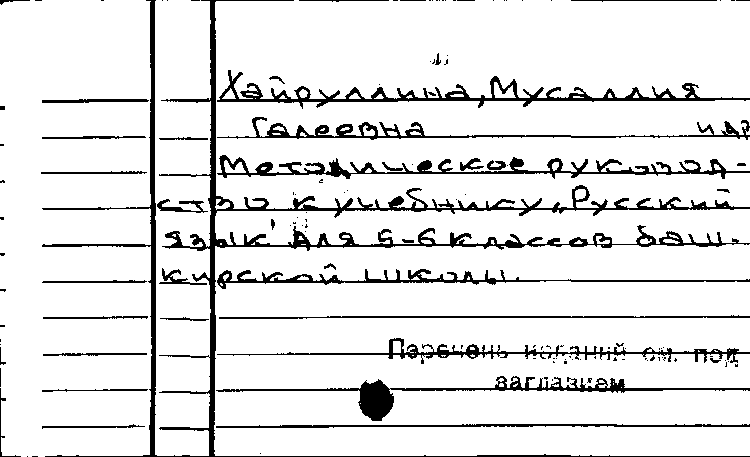 Хайруллина, Мусаллия
Галеевна и др
Методическое руковод-
ство к учебнику „Русский
язык" для 5-6 классов баш-
кирской школы.
Перечень изданий см. под
заглавием